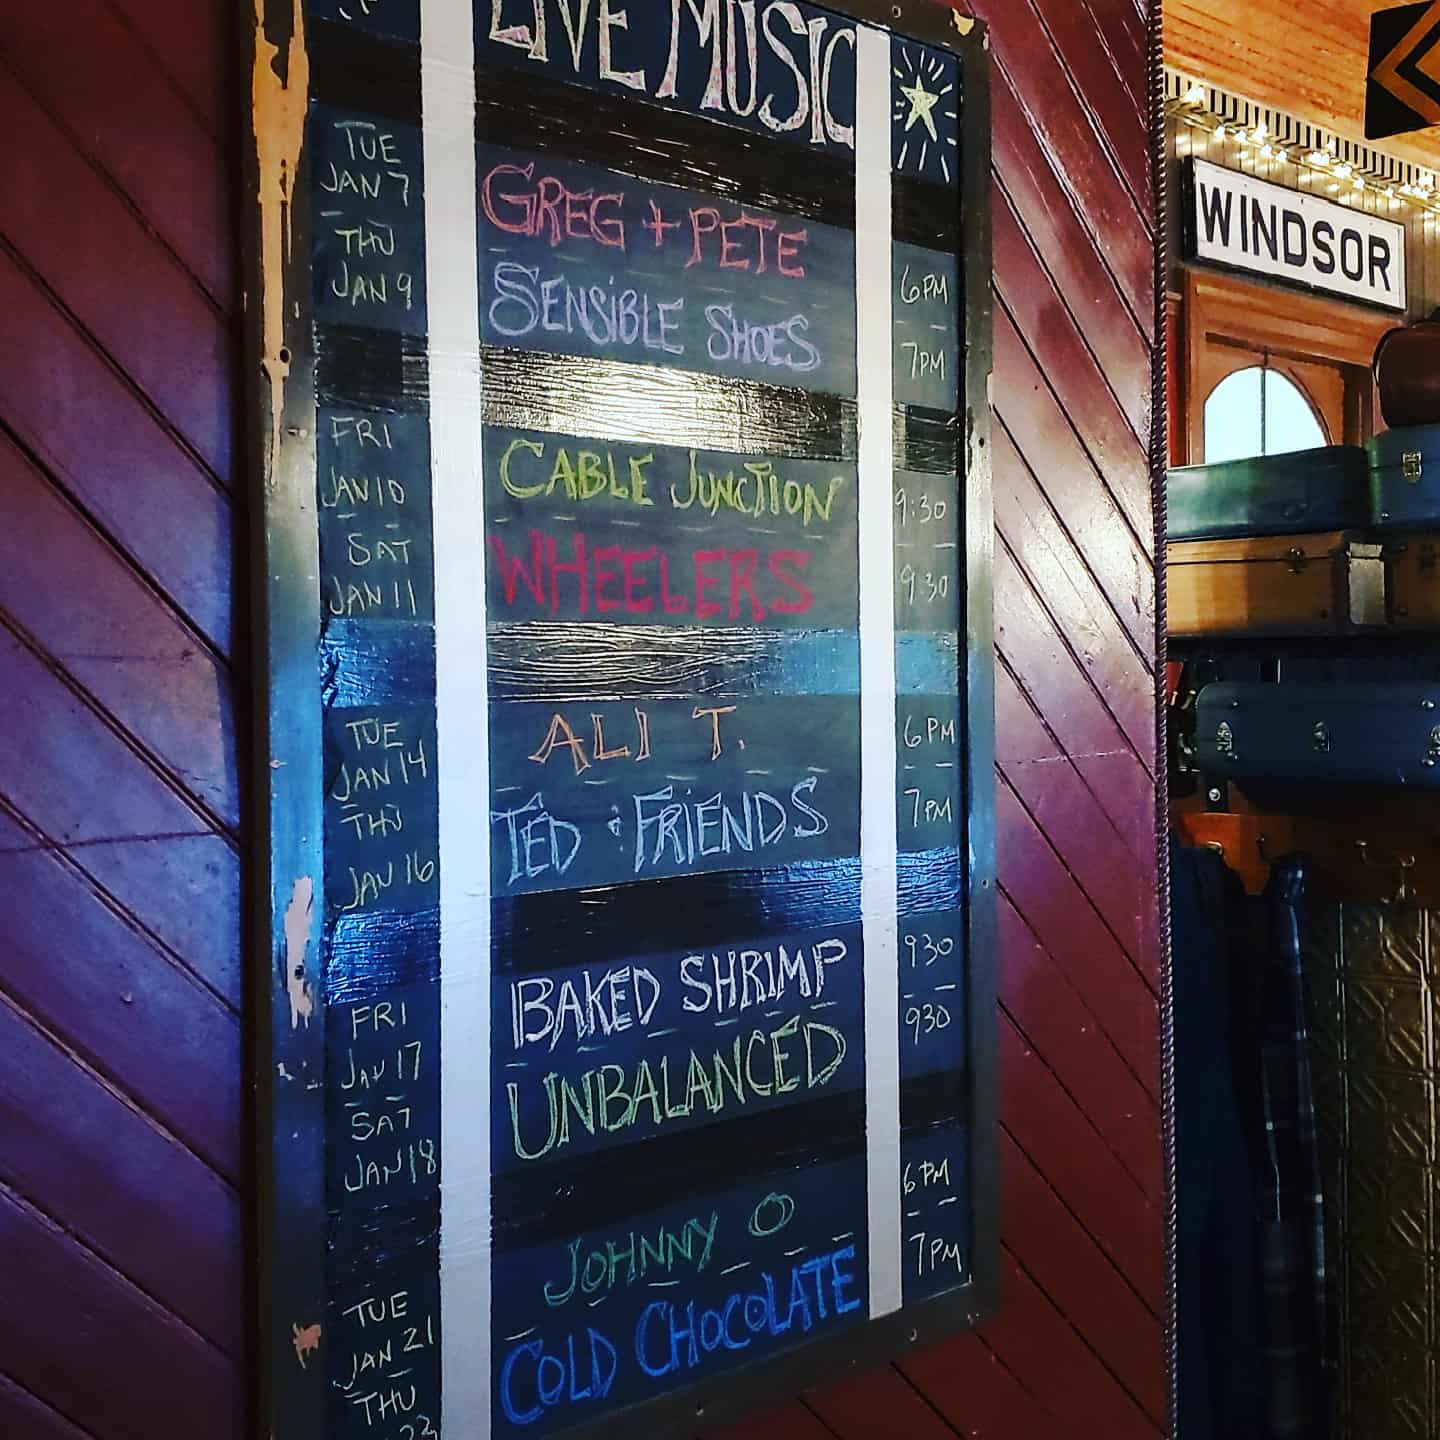 LIVE MUSIC
TUE
JAN 7
GREG + PETE
6PM
THU
JAN 9
SENSIBLE SHOES
7PM
FRI
JAN 10
CABLE JUNCTION
9:30
SAT
JAN 11
WHEELERS
9:30
TUE
JAN 14
ALI T.
6PM
THU
JAN 16
TED & FRIENDS
7PM
FRI
JAN 17
BAKED SHRIMP
930
SAT
JAN 18
UNBALANCED
930
TUE
JAN 21
JOHNNY O
6PM
THU
23
COLD CHOCOLATE
7PM
WINDSOR